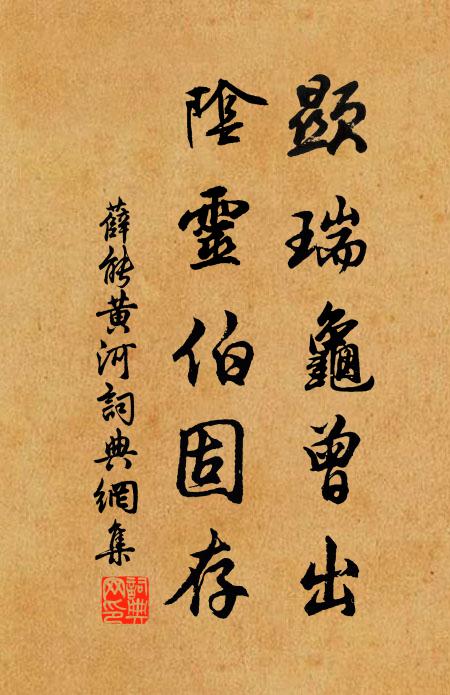 顯瑞龜曾出
陰靈伯固存
薛能黃河詞典網集
詞典網印